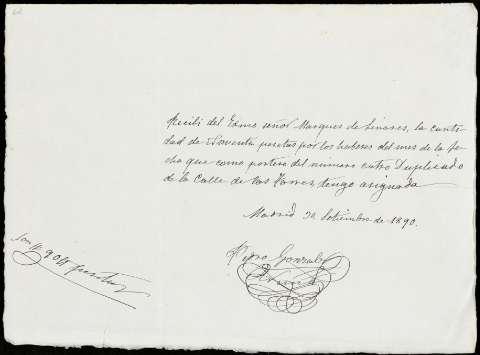 Recibí del Exmo señor Marques de Linares, la canti-
dad de Noventa pesetas por los haberes del mes de la fe-
cha que como portero del número cuatro Duplicado
de la Calle de las Torres, tengo asignada
Madrid 30 Setiembre de 1890.
Son 90
Gonzalez